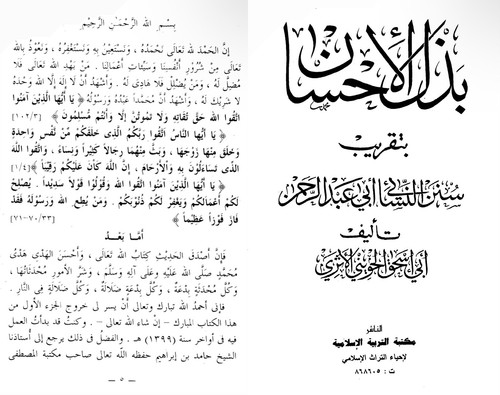 بذل الإحسان
بتقريب
سنن النسائي أبي عبد الرحمن
تأليف
أبي إسحق الحويني الأثري
الناشر
مكتبة التربية الإسلامية
لإحياء التراث الإسلامي
ت : ٨٦٨٦٠٥
بِسْمِ اللهِ الرَّحْمَـٰنِ الرَّحِيْمِ
إنَّ الحَمْدَ للهِ تَعَالَى نَحْمَدُهُ ، وَنَسْتَعِيْنُ بِهِ وَنَسْتَغْفِرُهُ ، وَنَعُوْذُ بِاللهِ
تَعَالَى مِنْ شُرُوْرِ أَنْفُسِنَا وَسَيِّئَاتِ أَعْمَالِنَا . مَنْ يَهْدِ اللهُ تَعَالَى فَلَا
مُضِلَّ لَهُ ، وَمَنْ يُضْلِلْ فَلَا هَادِىَ لَهُ . وَأَشْهَدُ أَنْ لَا إِلَهَ إِلَّا اللهُ وَحْدَهُ
لَا شَرِيْكَ لَهُ ، وَأَشْهَدُ أَنَّ مُحَمَّداً عَبْدُهُ وَرَسُوْلُهُ ﴿ يَا أَيُّهَا الَّذِيْنَ آمَنُوا
اتَّقُوا اللهَ حَقَّ تُقَاتِهِ وَلَا تَمُوْتُنَّ إِلَّا وَأَنْتُمْ مُسْلِمُوْنَ ﴾ [١٠٢/٣]
﴿ يَا أَيُّهَا النَّاسُ اتَّقُوا رَبَّكُمُ الَّذِى خَلَقَكُمْ مِنْ نَفْسٍ وَاحِدَةٍ
وَخَلَقَ مِنْهَا زَوْجَهَا ، وَبَثَّ مِنْهُمَا رِجَالاً كَثِيْراً وَنِسَاءً ، وَاتَّقُوا اللهَ
الَّذِى تَسَاءَلُوْنَ بِهِ وَالأَرْحَامَ ، إِنَّ اللهَ كَانَ عَلَيْكُمْ رَقِيْباً ﴾ [١/٤]
﴿ يَا أَيُّهَا الَّذِيْنَ آمَنُوا اتَّقُوا اللهَ وَقُوْلُوْا قَوْلاً سَدِيْداً . يُصْلِحْ
لَكُمْ أَعْمَالَكُمْ وَيَغْفِرْ لَكُمْ ذُنُوْبَكُمْ . وَمَنْ يُطِعِ اللهَ وَرَسُوْلَهُ فَقَدْ
فَازَ فَوْزاً عَظِيْماً ﴾ [٣٣/ ٧٠-٧١]
أَمَّا بَعْـدُ
فَإِنَّ أَصْدَقَ الحَدِيْثِ كِتَابُ اللهِ تَعَالَى ، وَأَحْسَنَ الهَدْىِ هَدْىُ
مُحَمَّدٍ صَلَّى اللهُ عَلَيْهِ وَعَلَى آلِهِ وَسَلَّمَ ، وَشَرَّ الأُمُورِ مُحْدَثَاتُهَا ،
وَكُلَّ مُحْدَثَةٍ بِدْعَةٌ ، وَكُلَّ بِدْعَةٍ ضَلَالَةٌ ، وَكُلَّ ضَلَالَةٍ فِى النَّارِ .
فإنى أحمدُ الله تبارك وتعالى أنْ يسر لى خروج الجزء الأول من
هذا الكتاب المبارك – إنْ شاء الله تعالى – . وكنت قد بدأتُ العمل
فيه فى أواخر سنة (١٣٩٩) هـ . والفضلُ فى ذلك يرجع إلى أستاذنا
الشيخ حامد بن إبراهيم حفظه اللّه تعالى صاحب مكتبة المصطفى
– ٥ –